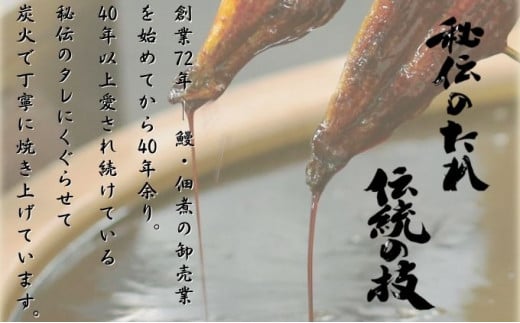 秘伝のたれ
伝統の技
創業72年 鰻・佃煮の卸売業
を始めてから40年余り。
40年以上愛され続けている
秘伝のタレにくぐらせて
炭火で丁寧に焼き上げています。